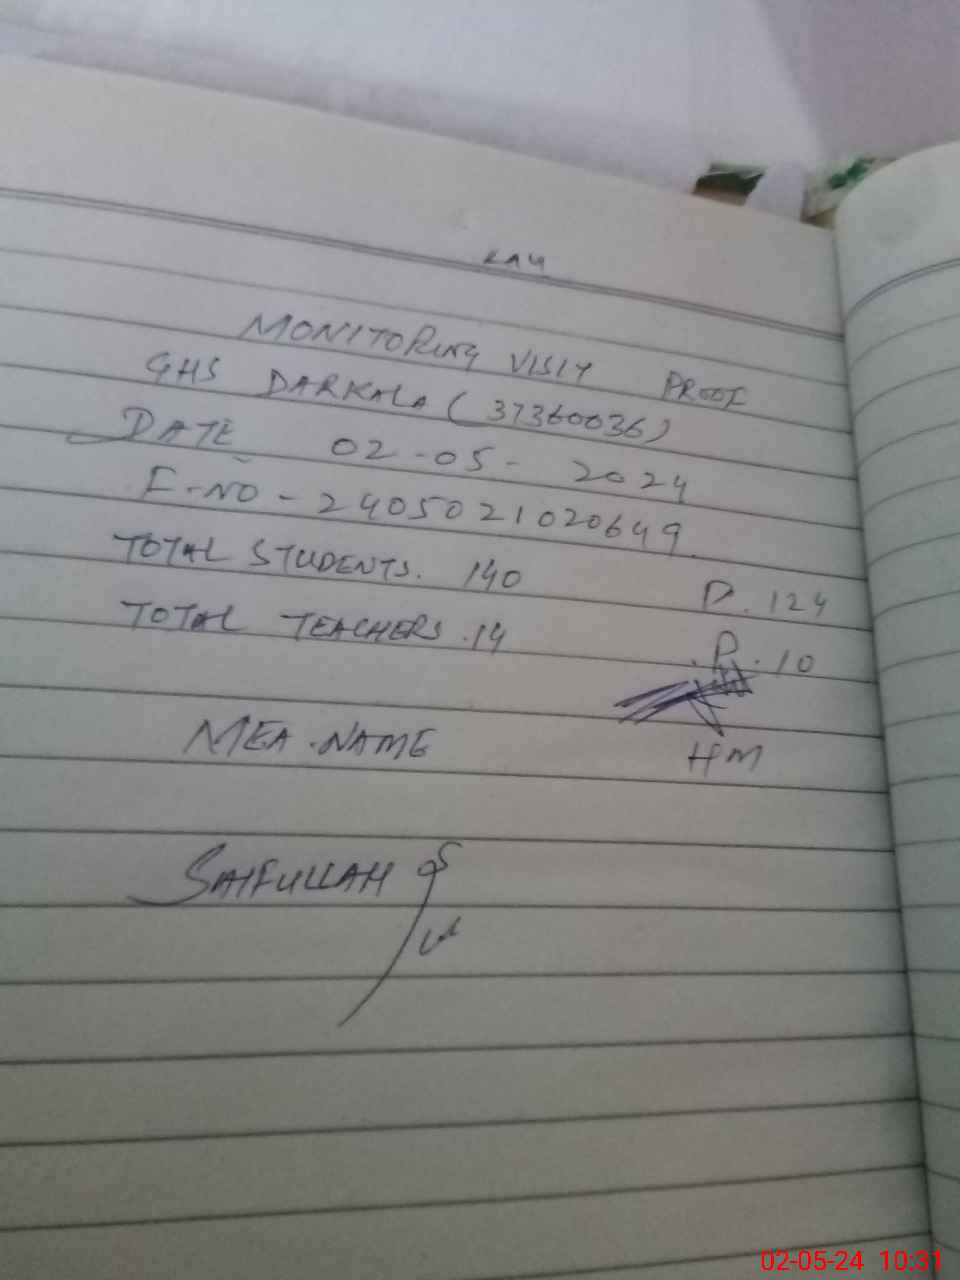 MONITORING VISIT PROOF
GHS DARKALA (37360036)
DATE 02-05-2024
F-NO-2405021020649
TOTAL STUDENTS. 140 P. 124
TOTAL TEACHERS. 14 P. 10
MEA. NAME HM
SAIFULLAH
02-05-24 10:31